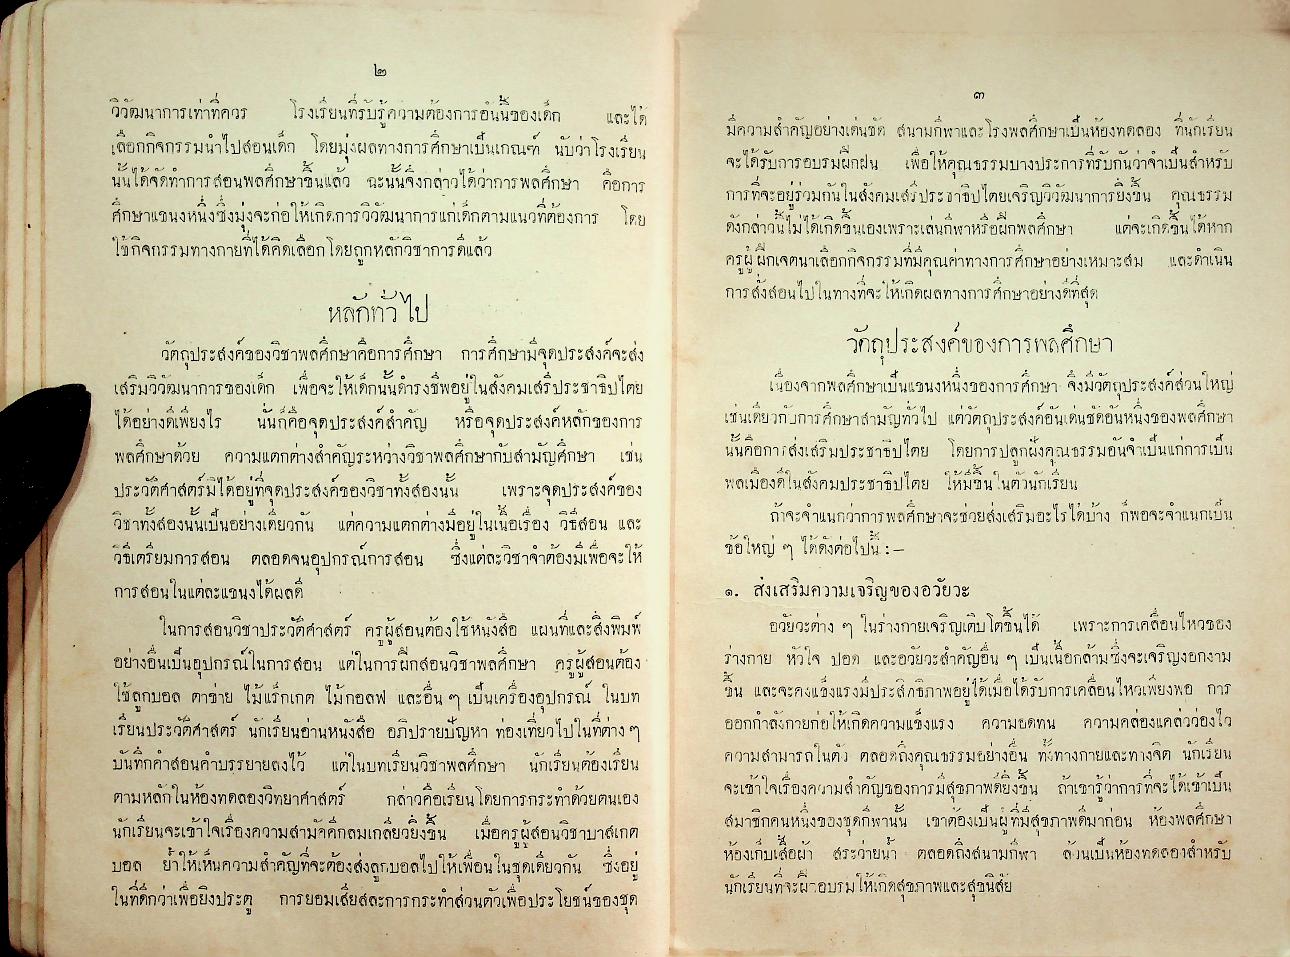 ๒
วิวัฒนาการเท่าที่ควร โรงเรียนที่รับรู้ความต้องการอันนี้ของเด็ก และได้
เลือกกิจกรรมนำไปสอนเด็ก โดยมุ่งผลทางการศึกษาเป็นเกณฑ์ นับว่าโรงเรียน
นั้นได้จัดทำการสอนพลศึกษาขึ้นแล้ว ฉะนั้นจึงกล่าวได้ว่าการพลศึกษา คือการ
ศึกษาแขนงหนึ่งซึ่งมุ่งจะก่อให้เกิดการวิวัฒนาการแก่เด็กตามแนวที่ต้องการ โดย
ใช้กิจกรรมทางกายที่ได้คิดเลือกโดยถูกหลักวิชาการดีแล้ว
หลักทั่วไป
วัตถุประสงค์ของวิชาพลศึกษาคือการศึกษา การศึกษามีจุดประสงค์จะส่ง
เสริมวิวัฒนาการของเด็ก เพื่อจะให้เด็กนั้นดำรงชีพอยู่ในสังคมเสรีประชาธิปไตย
ได้อย่างดีเพียงไร นั่นก็คือจุดประสงค์สำคัญ หรือจุดประสงค์หลักของการ
พลศึกษาด้วย ความแตกต่างสำคัญระหว่างวิชาพลศึกษากับสามัญศึกษา เช่น
ประวัติศาสตร์มิได้อยู่ที่จุดประสงค์ของวิชาทั้งสองนั้น เพราะจุดประสงค์ของ
วิชาทั้งสองนั้นเป็นอย่างเดียวกัน แต่ความแตกต่างมีอยู่ในเนื้อเรื่อง วิธีสอน และ
วิธีเตรียมการสอน ตลอดจนอุปกรณ์การสอน ซึ่งแต่ละวิชาจำต้องมีเพื่อจะให้
การสอนในแต่ละแขนงได้ผลดี
ในการสอนวิชาประวัติศาสตร์ ครูผู้สอนต้องใช้หนังสือ แผนที่และสิ่งพิมพ์
อย่างอื่นเป็นอุปกรณ์ในการสอน แต่ในการฝึกสอนวิชาพลศึกษา ครูผู้สอนต้อง
ใช้ลูกบอล ตาข่าย ไม้แร็กเกต ไม้กอลฟ และอื่น ๆ เป็นเครื่องอุปกรณ์ ในบท
เรียนประวัติศาสตร์ นักเรียนอ่านหนังสือ อภิปรายปัญหา ท่องเที่ยวไปในที่ต่าง ๆ
บันทึกคำสอนคำบรรยายลงไว้ แต่ในบทเรียนวิชาพลศึกษา นักเรียนต้องเรียน
ตามหลักในห้องทดลองวิทยาศาสตร์ กล่าวคือเรียนโดยการกระทำด้วยตนเอง
นักเรียนจะเข้าใจเรื่องความสามัคคีกลมเกลียวยิ่งขึ้น เมื่อครูผู้สอนวิชาบาสเกต
บอล ย้ำให้เห็นความสำคัญที่จะต้องส่งลูกบอลไปให้เพื่อนในชุดเดียวกัน ซึ่งอยู่
ในที่ดีกว่าเพื่อยิงประตู การยอมเสียสละการกระทำส่วนตัวเพื่อประโยชน์ของชุด
๓
มีความสำคัญอย่างเด่นชัด สนามกีฬาและโรงพลศึกษาเป็นห้องทดลอง ที่นักเรียน
จะได้รับการอบรมฝึกฝน เพื่อให้คุณธรรมบางประการที่รับกันว่าจำเป็นสำหรับ
การที่จะอยู่ร่วมกันในสังคมเสรีประชาธิปไตยเจริญวิวัฒนาการยิ่งขึ้น คุณธรรม
ดังกล่าวนี้ไม่ได้เกิดขึ้นเองเพราะเล่นกีฬาหรือฝึกพลศึกษา แต่จะเกิดขึ้นได้หาก
ครูผู้ฝึกเจตนาเลือกกิจกรรมที่มีคุณค่าทางการศึกษาอย่างเหมาะสม และดำเนิน
การสั่งสอนไปในทางที่จะให้เกิดผลทางการศึกษาอย่างดีที่สุด
วัตถุประสงค์ของการพลศึกษา
เนื่องจากพลศึกษาเป็นแขนงหนึ่งของการศึกษา จึงมีวัตถุประสงค์ส่วนใหญ่
เช่นเดียวกับการศึกษาสามัญทั่วไป แต่วัตถุประสงค์อันเด่นชัดอันหนึ่งของพลศึกษา
นั้นคือการส่งเสริมประชาธิปไตย โดยการปลูกฝังคุณธรรมอันจำเป็นแก่การเป็น
พลเมืองดีในสังคมประชาธิปไตย ให้มีขึ้นในตัวนักเรียน
ถ้าจะจำแนกว่าการพลศึกษาจะช่วยส่งเสริมอะไรได้บ้าง ก็พอจะจำแนกเป็น
ข้อใหญ่ ๆ ได้ดังต่อไปนี้ :–
๑. ส่งเสริมความเจริญของอวัยวะ
อวัยวะต่าง ๆ ในร่างกายเจริญเติบโตขึ้นได้ เพราะการเคลื่อนไหวของ
ร่างกาย หัวใจ ปอด และอวัยวะสำคัญอื่น ๆ เป็นเนื้อกล้ามซึ่งจะเจริญงอกงาม
ขึ้น และจะคงแข็งแรงมีประสิทธิภาพอยู่ได้เมื่อได้รับการเคลื่อนไหวเพียงพอ การ
ออกกำลังกายก่อให้เกิดความแข็งแรง ความอดทน ความคล่องแคล่วว่องไว
ความสามารถในตัว ตลอดถึงคุณธรรมอย่างอื่น ทั้งทางกายและทางจิต นักเรียน
จะเข้าใจเรื่องความสำคัญของการมีสุขภาพดียิ่งขึ้น ถ้าเขารู้ว่าการที่จะได้เข้าเป็น
สมาชิกคนหนึ่งของชุดกีฬานั้น เขาต้องเป็นผู้ที่มีสุขภาพดีมาก่อน ห้องพลศึกษา
ห้องเก็บเสื้อผ้า สระว่ายน้ำ ตลอดถึงสนามกีฬา ล้วนเป็นห้องทดลองสำหรับ
นักเรียนที่จะฝึกอบรมให้เกิดสุขภาพและสุขนิสัย